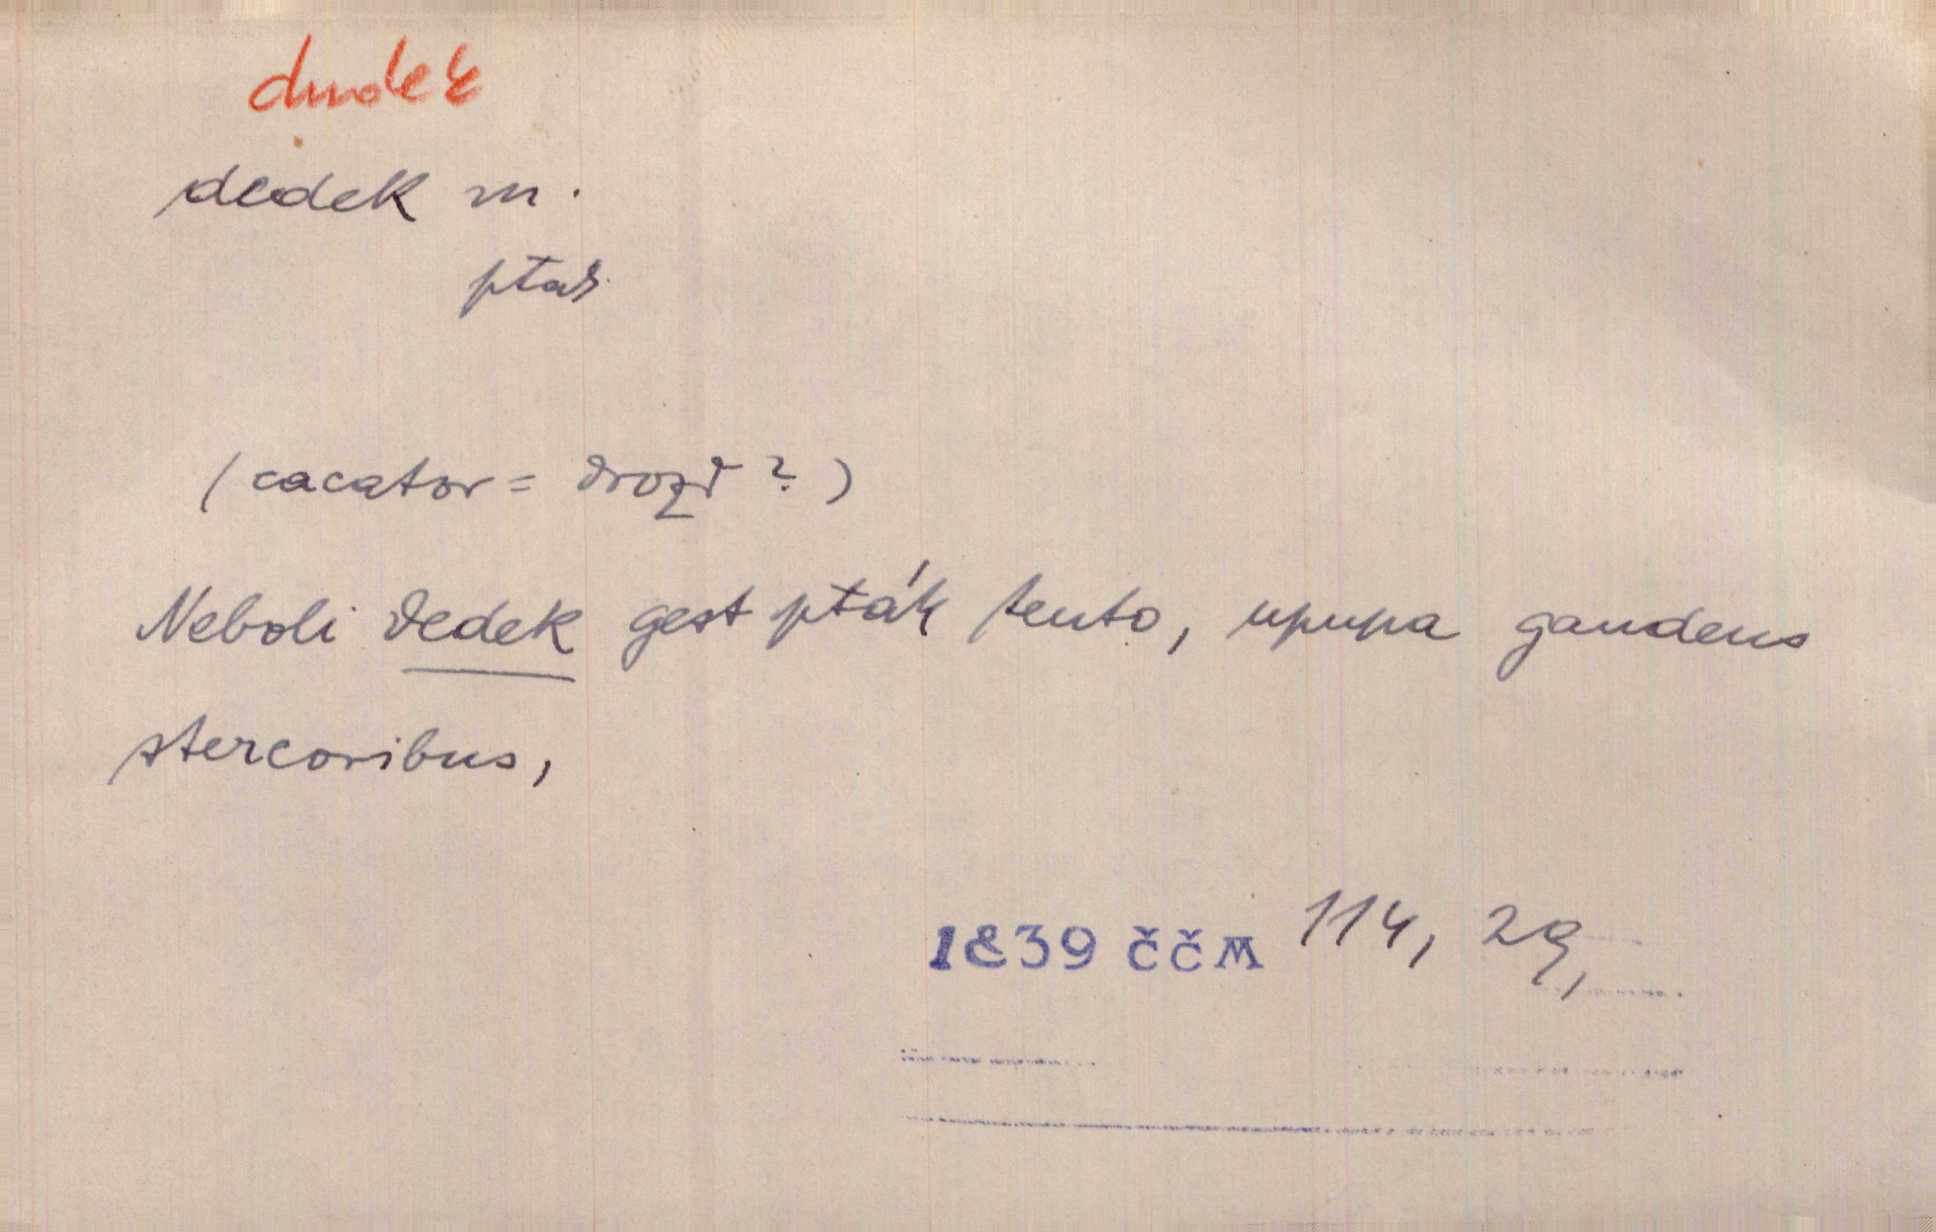 dudek
dedek m.
ptak
(cacator = drozd ? )
Neboli dedek gest pták tento, upupa gaudens
stercoribus,
1839 ČČM 114, 29,